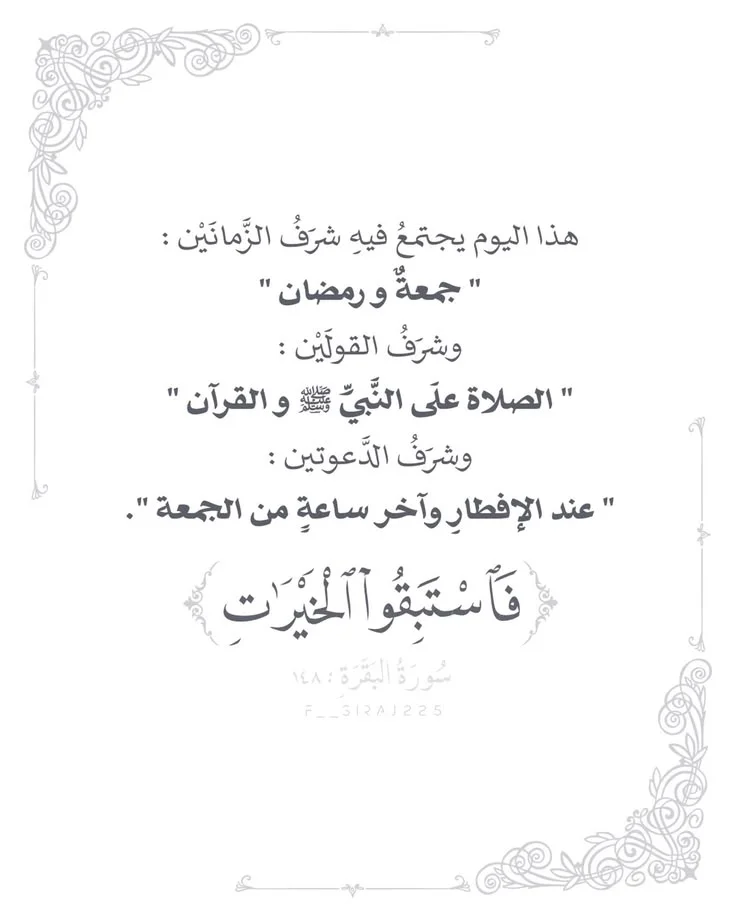 هذا اليوم يجتمعُ فيهِ شرَفُ الزَّمانَيْن :
" جمعةٌ و رمضان "
وشرَفُ القولَيْن :
" الصلاة علَى النَّبيِّ ﷺ و القرآن "
وشرَفُ الدَّعوتين :
" عند الإفطارِ وآخر ساعةٍ من الجمعة ".
فَٱسْتَبِقُوا۟ ٱلْخَيْرَٰتِ
سُورَةُ البَقَرَةِ : ١٤٨
F__SIRAJ225